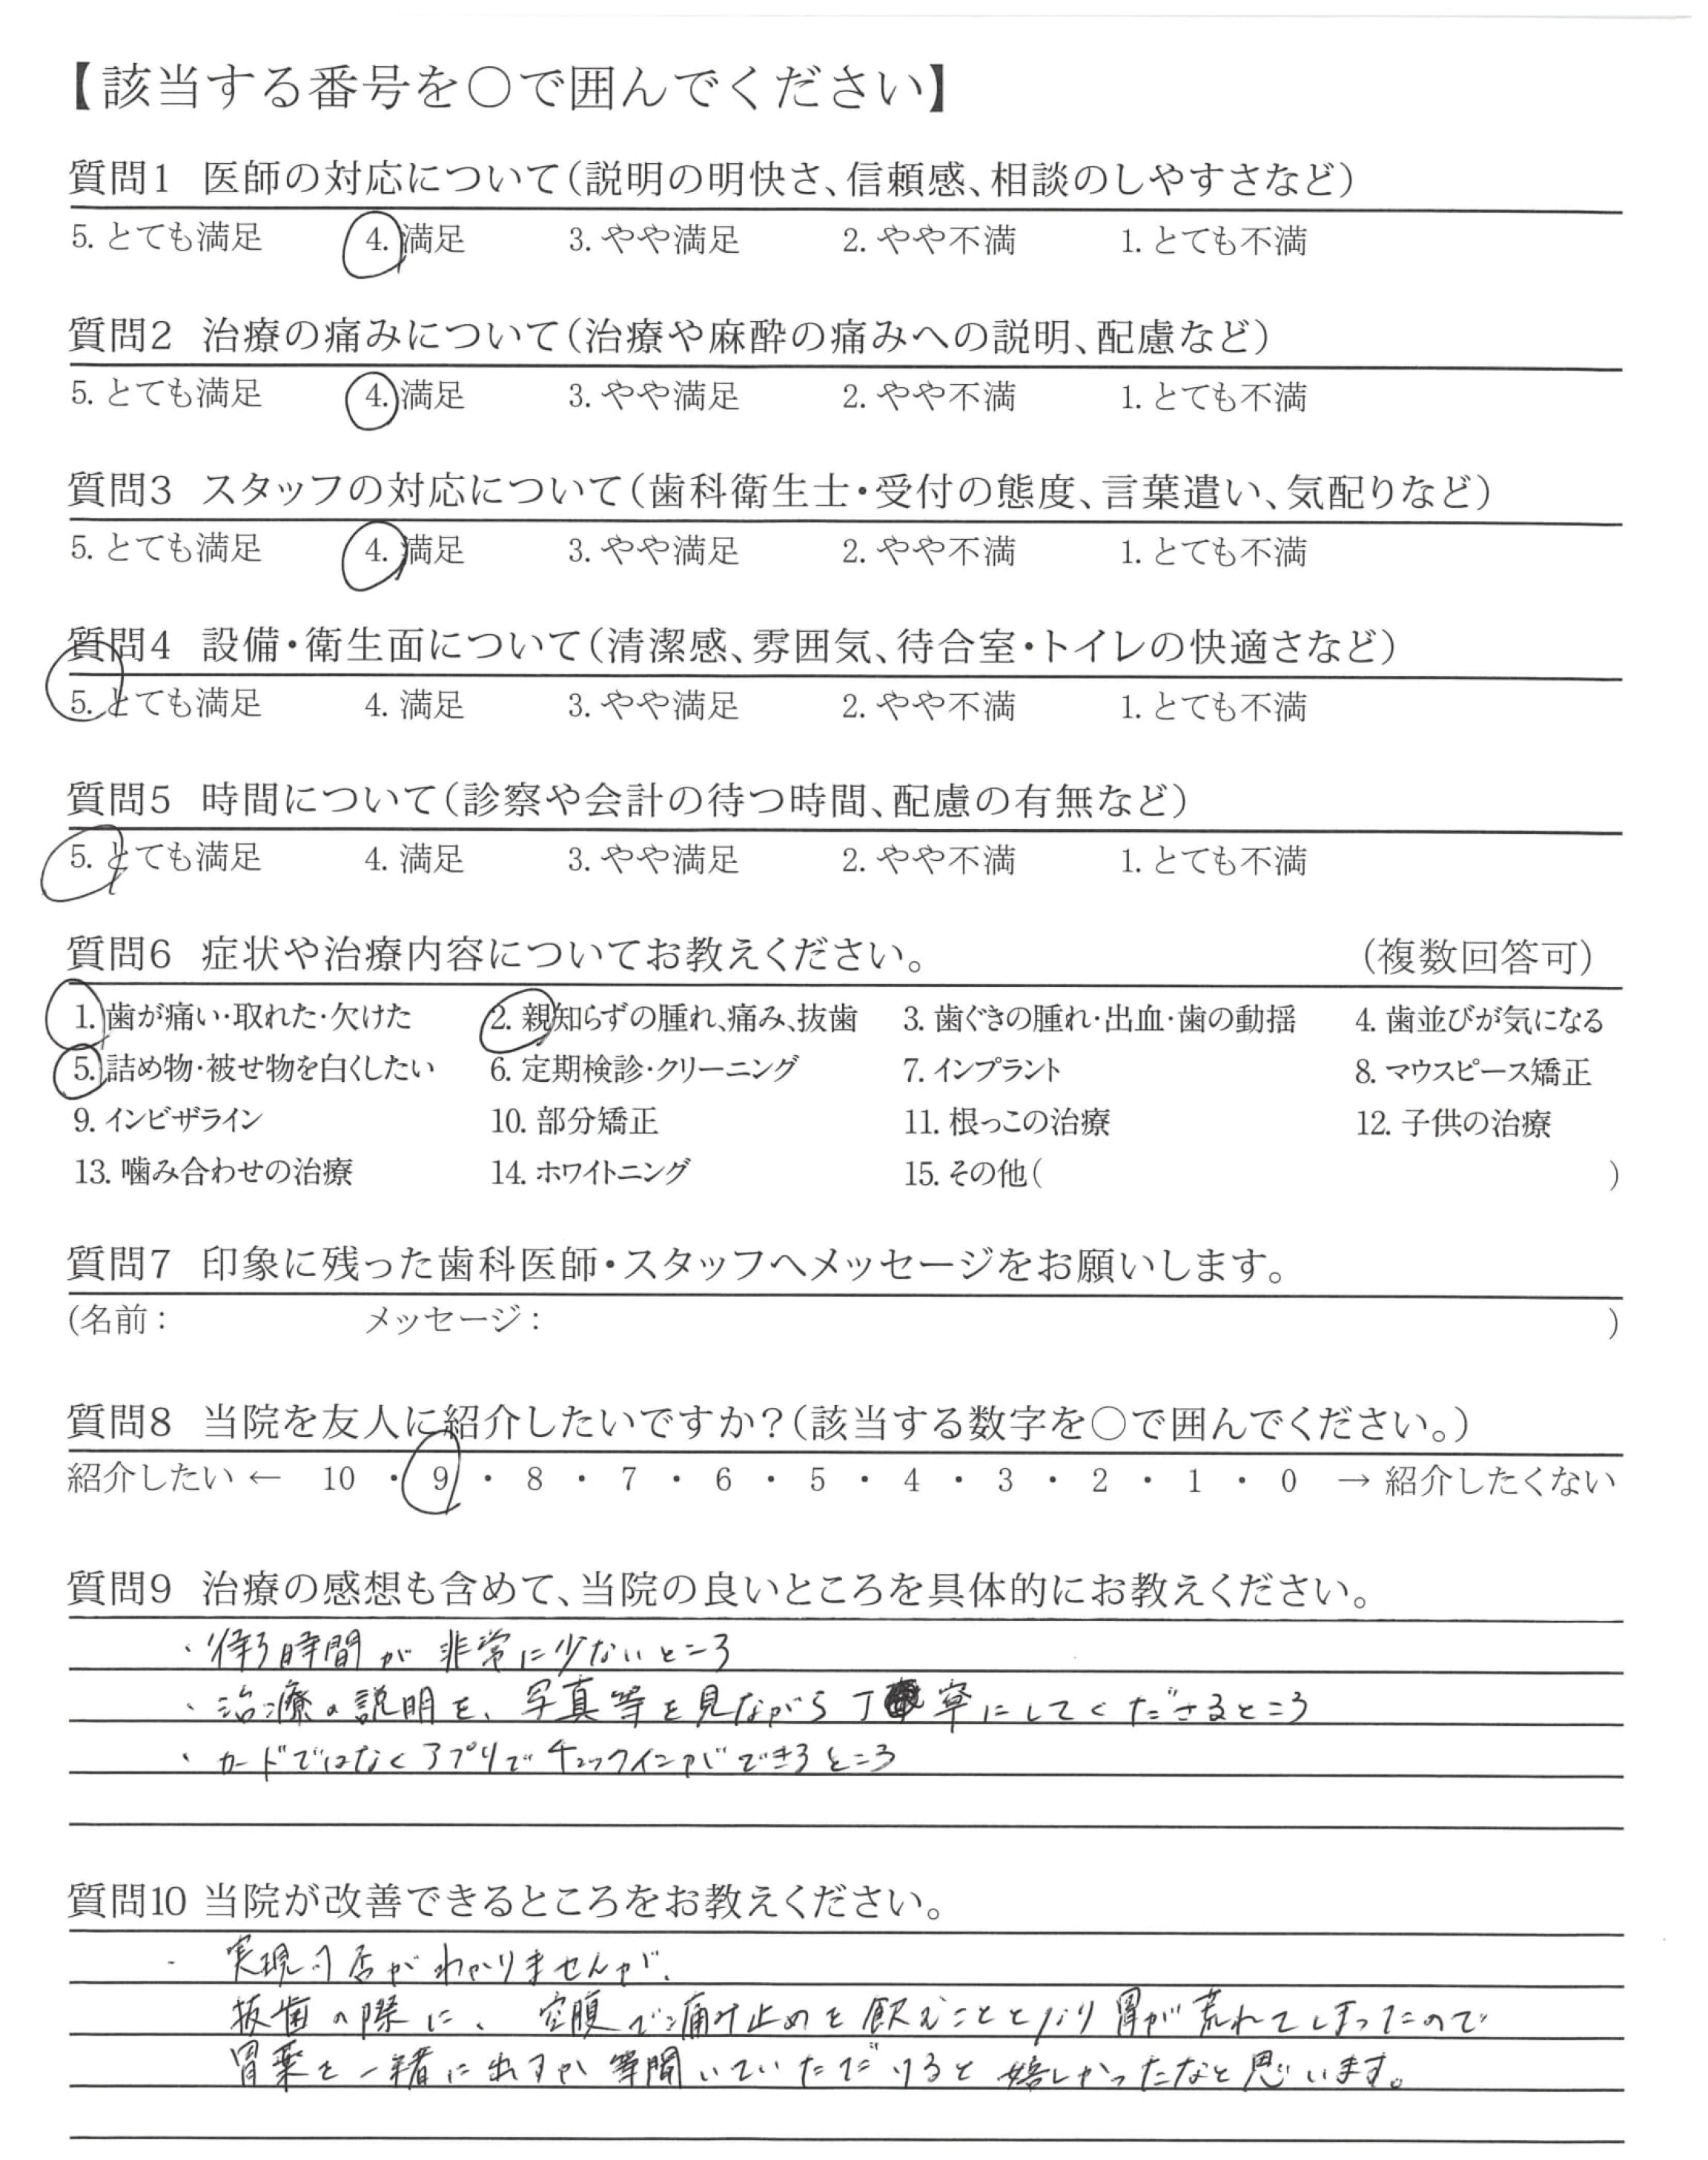 【該当する番号を○で囲んでください】
質問1 医師の対応について(説明の明快さ、信頼感、相談のしやすさなど)
5. とても満足 4. 満足 3. やや満足 2. やや不満 1. とても不満
質問2 治療の痛みについて(治療や麻酔の痛みへの説明、配慮など)
5. とても満足 4. 満足 3. やや満足 2. やや不満 1. とても不満
質問3 スタッフの対応について(歯科衛生士・受付の態度、言葉遣い、気配りなど)
5. とても満足 4. 満足 3. やや満足 2. やや不満 1. とても不満
質問4 設備・衛生面について(清潔感、雰囲気、待合室・トイレの快適さなど)
5. とても満足 4. 満足 3. やや満足 2. やや不満 1. とても不満
質問5 時間について(診察や会計の待つ時間、配慮の有無など)
5. とても満足 4. 満足 3. やや満足 2. やや不満 1. とても不満
質問6 症状や治療内容についてお教えください。 (複数回答可)
1. 歯が痛い・取れた・欠けた 2. 親知らずの腫れ、痛み、抜歯 3. 歯ぐきの腫れ・出血・歯の動揺 4. 歯並びが気になる
5. 詰め物・被せ物を白くしたい 6. 定期検診・クリーニング 7. インプラント 8. マウスピース矯正
9. インビザライン 10. 部分矯正 11. 根っこの治療 12. 子供の治療
13. 噛み合わせの治療 14. ホワイトニング 15. その他( )
質問7 印象に残った歯科医師・スタッフへメッセージをお願いします。
(名前： メッセージ： )
質問8 当院を友人に紹介したいですか?(該当する数字を○で囲んでください。)
紹介したい ← 10 ・ 9 ・ 8 ・ 7 ・ 6 ・ 5 ・ 4 ・ 3 ・ 2 ・ 1 ・ 0 → 紹介したくない
質問9 治療の感想も含めて、当院の良いところを具体的にお教えください。
・待つ時間が非常に少ないところ
・治療の説明を、写真等を見ながら丁寧にしてくださるところ
・カードではなくアプリでチェックインができるところ
質問10 当院が改善できるところをお教えください。
- 実現可否がわかりませんが、
抜歯の際に、空腹で痛み止めを飲むこととなり胃が荒れてしまったので
胃薬を一緒に出すか等聞いていただけると嬉しかったなと思います。